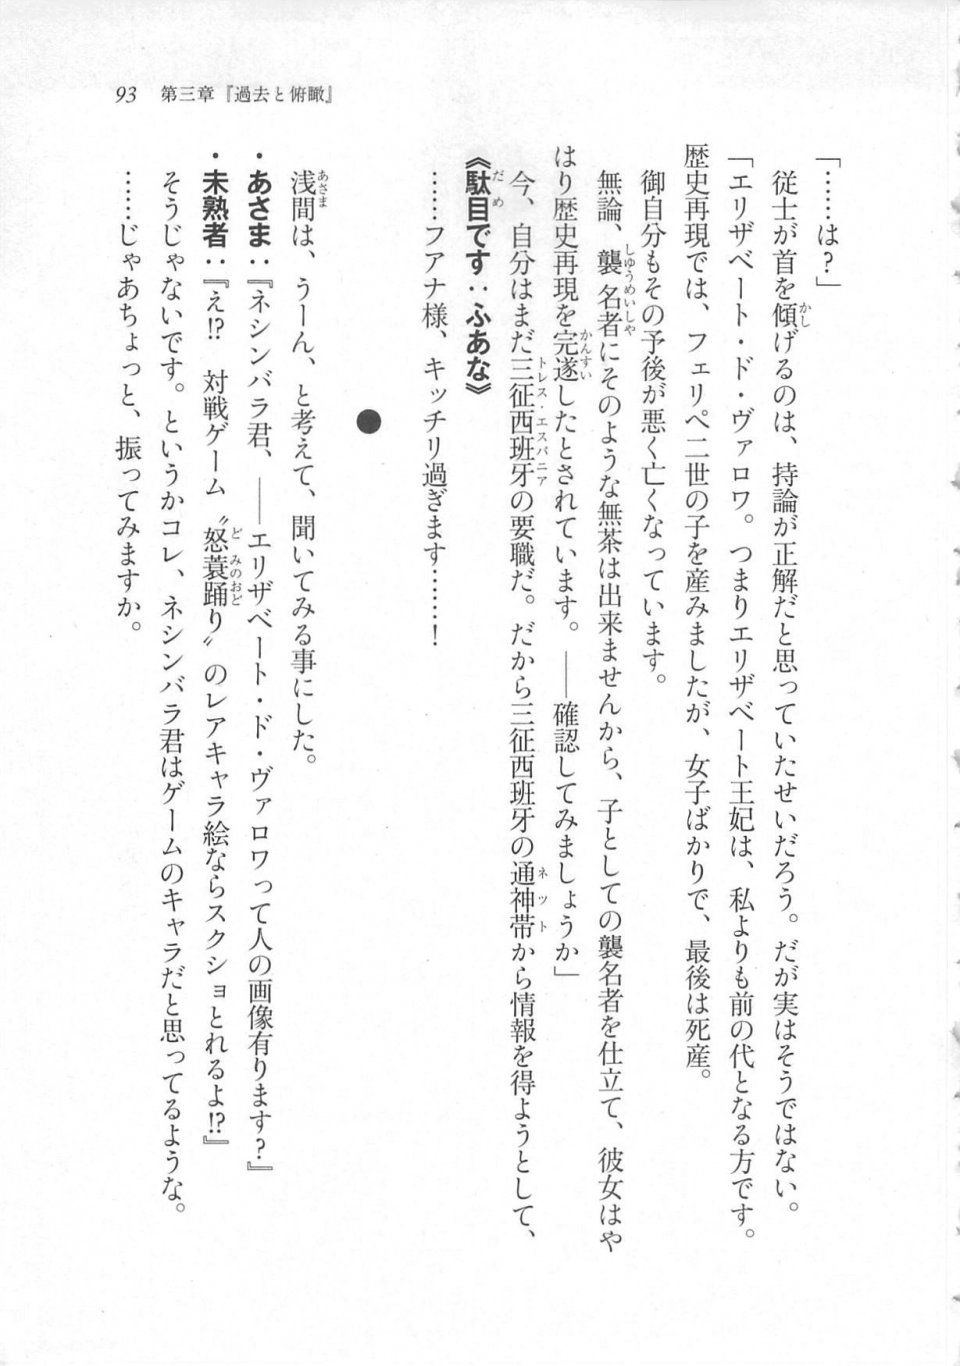 93　第三章『過去と俯瞰』
「……は？」
　従士が首を傾げるのは、持論が正解だと思っていたせいだろう。だが実はそうではない。
「エリザベート・ド・ヴァロワ。つまりエリザベート王妃は、私よりも前の代となる方です。
歴史再現では、フェリペ二世の子を産みましたが、女子ばかりで、最後は死産。
　御自分もその予後が悪く亡くなっています。
　無論、襲名者にそのような無茶は出来ませんから、子としての襲名者を仕立て、彼女はや
はり歴史再現を完遂したとされています。――確認してみましょうか」
　今、自分はまだ三征西班牙の要職だ。だから三征西班牙の通神帯から情報を得ようとして、
《駄目です：ふあな》
　……フアナ様、キッチリ過ぎます……！
●
　浅間は、うーん、と考えて、聞いてみる事にした。
・あさま：『ネシンバラ君、――エリザベート・ド・ヴァロワって人の画像有ります？』
・未熟者：『え!?　対戦ゲーム〝怒蓑踊り〟のレアキャラ絵ならスクショとれるよ!?』
　そうじゃないです。というかコレ、ネシンバラ君はゲームのキャラだと思ってるような。
　……じゃあちょっと、振ってみますか。